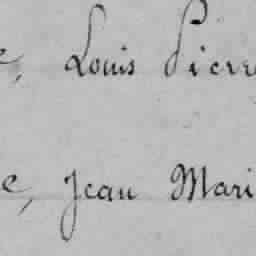 e, Louis Pierr
e, Jean Mari